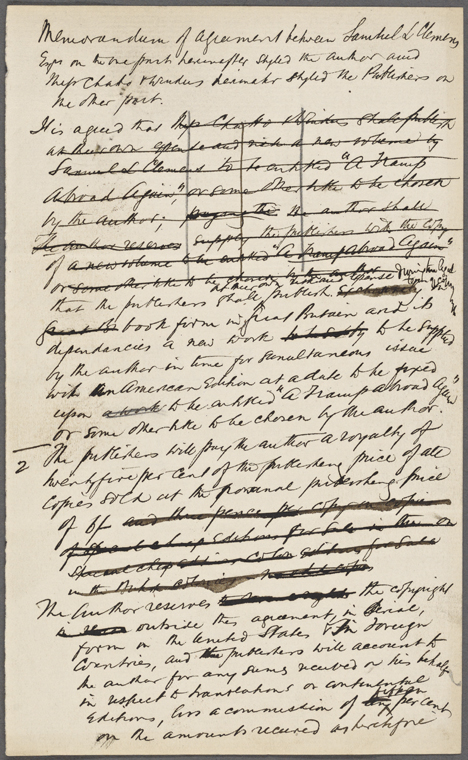 Memorandum of Agreement between Samuel L Clemens
Esqre on the one part hereinafter styled the Author and
Messrs Chatto & Windus hereinafter styled the Publishers on
the other part.
It is agreed that Messrs Chatto & Windus shall publish
at their own expense and risk a new volume by
Samuel L Clemens to be entitled "A Tramp
Abroad Again," or some other title to be chosen
by the author; the author shall
The Author reserves supply the publishers with the copy
of a new volume to be entitled "A Tramp Abroad Again"
or some other title to be chosen by the author
at their own risk and expense during the legal
that the publishers shall publish
book form in Great Britain and its
dependancies a new work to be supplied
by the author in time for simultaneous issue
with an American Edition at a date to be fixed
upon a work to be entitled "A Tramp abroad Again"
or some other title to be chosen by the author.
2 The publishers will pay the author a royalty of
twenty five per cent of the publishing price of all
copies sold at the nominal publishing price
of 6/- and three pence per copy on copies
of special cheap editions for sale in the or
special cheap editions Colonial Editions for sale
in the British Colonies
The Author reserves the copyright
outside this agreement, in Serial,
form in the United States & in Foreign
Countries, and the publishers will account to
the author for any sums received on his behalf
in respect to translations or continental
Editions, less a commission of fifteen per cent
on the amounts received as heretofore